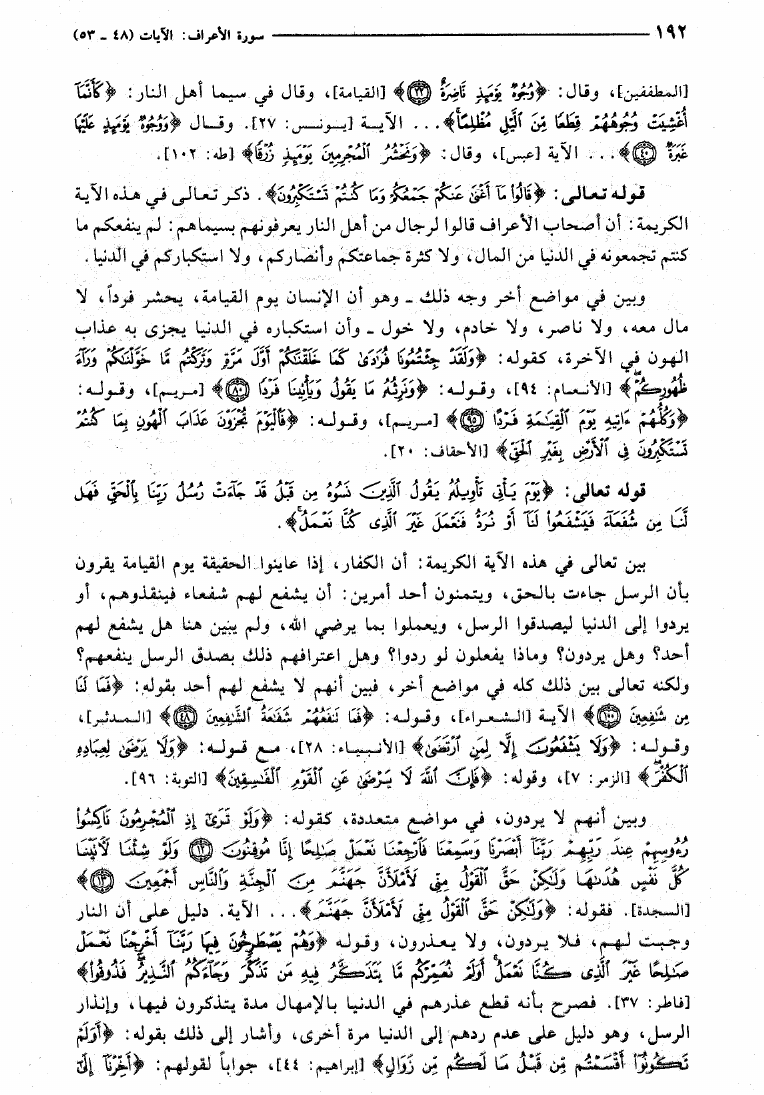 ١٩٢ سورة الأعراف: الآيات (٤٨ - ٥٣)
[المطففين]، وقال: ﴿وُجُوهٌ يَوْمَئِذٍ نَاضِرَةٌ ٢٢﴾ [القيامة]، وقال في سيما أهل النار: ﴿كَأَنَّمَا
أُغْشِيَتْ وُجُوهُهُمْ قِطَعًا مِنَ اللَّيْلِ مُظْلِمًا﴾... الآية [يونس: ٢٧]. وقال ﴿وَوُجُوهٌ يَوْمَئِذٍ عَلَيْهَا
غَبَرَةٌ ٤٠﴾... الآية [عبس]، وقال: ﴿وَنَحْشُرُ الْمُجْرِمِينَ يَوْمَئِذٍ زُرْقًا﴾ [طه: ١٠٢].
قوله تعالى: ﴿قَالُوا مَا أَغْنَى عَنكُمْ جَمْعُكُمْ وَمَا كُنتُمْ تَسْتَكْبِرُونَ﴾. ذكر تعالى في هذه الآية
الكريمة: أن أصحاب الأعراف قالوا لرجال من أهل النار يعرفونهم بسيماهم: لم ينفعكم ما
كنتم تجمعونه في الدنيا من المال، ولا كثرة جماعتكم وأنصاركم، ولا استكباركم في الدنيا.
وبين في مواضع أخر وجه ذلك - وهو أن الإنسان يوم القيامة، يحشر فرداً، لا
مال معه، ولا ناصر، ولا خادم، ولا خول - وأن استكباره في الدنيا يجزى به عذاب
الهون في الآخرة، كقوله: ﴿وَلَقَدْ جِئْتُمُونَا فُرَادَى كَمَا خَلَقْنَاكُمْ أَوَّلَ مَرَّةٍ وَتَرَكْتُم مَّا خَوَّلْنَاكُمْ وَرَاءَ
ظُهُورِكُمْ﴾ [الأنعام: ٩٤]، وقوله: ﴿وَنَرِثُهُ مَا يَقُولُ وَيَأْتِينَا فَرْدًا ٨٠﴾ [مريم]، وقوله:
﴿وَكُلُّهُمْ ءَاتِيهِ يَوْمَ الْقِيَامَةِ فَرْدًا ٩٥﴾ [مريم]، وقوله: ﴿فَالْيَوْمَ تُجْزَوْنَ عَذَابَ الْهُونِ بِمَا كُنتُمْ
تَسْتَكْبِرُونَ فِي الْأَرْضِ بِغَيْرِ الْحَقِّ﴾ [الأحقاف: ٢٠].
قوله تعالى: ﴿يَوْمَ يَأْتِي تَأْوِيلُهُ يَقُولُ الَّذِينَ نَسُوهُ مِن قَبْلُ قَدْ جَاءَتْ رُسُلُ رَبِّنَا بِالْحَقِّ فَهَل
لَّنَا مِن شُفَعَاءَ فَيَشْفَعُوا لَنَا أَوْ نُرَدُّ فَنَعْمَلَ غَيْرَ الَّذِي كُنَّا نَعْمَلُ﴾.
بين تعالى في هذه الآية الكريمة: أن الكفار، إذا عاينوا الحقيقة يوم القيامة يقرون
بأن الرسل جاءت بالحق، ويتمنون أحد أمرين: أن يشفع لهم شفعاء فينقذوهم، أو
يردوا إلى الدنيا ليصدقوا الرسل، ويعملوا بما يرضي الله، ولم يبين هنا هل يشفع لهم
أحد؟ وهل يردون؟ وماذا يفعلون لو ردوا؟ وهل اعترافهم ذلك بصدق الرسل ينفعهم؟
ولكنه تعالى بين ذلك كله في مواضع أخر، فبين أنهم لا يشفع لهم أحد بقوله: ﴿فَمَا لَنَا
مِن شَافِعِينَ ١٠٠﴾ الآية [الشعراء]، وقوله: ﴿فَمَا تَنفَعُهُمْ شَفَاعَةُ الشَّافِعِينَ ٤٨﴾ [المدثر]،
وقوله: ﴿وَلَا يَشْفَعُونَ إِلَّا لِمَنِ ارْتَضَى﴾ [الأنبياء: ٢٨]، مع قوله: ﴿وَلَا يَرْضَى لِعِبَادِهِ
الْكُفْرَ﴾ [الزمر: ٧]، وقوله: ﴿فَإِنَّ اللَّهَ لَا يَرْضَى عَنِ الْقَوْمِ الْفَاسِقِينَ﴾ [التوبة: ٩٦].
وبين أنهم لا يردون، في مواضع متعددة، كقوله: ﴿وَلَوْ تَرَى إِذِ الْمُجْرِمُونَ نَاكِسُوا
رُءُوسِهِمْ عِندَ رَبِّهِمْ رَبَّنَا أَبْصَرْنَا وَسَمِعْنَا فَارْجِعْنَا نَعْمَلْ صَالِحًا إِنَّا مُوقِنُونَ ١٢ وَلَوْ شِئْنَا لَآتَيْنَا
كُلَّ نَفْسٍ هُدَاهَا وَلَكِنْ حَقَّ الْقَوْلُ مِنِّي لَأَمْلَأَنَّ جَهَنَّمَ مِنَ الْجِنَّةِ وَالنَّاسِ أَجْمَعِينَ ١٣﴾
[السجدة]. فقوله: ﴿وَلَكِنْ حَقَّ الْقَوْلُ مِنِّي لَأَمْلَأَنَّ جَهَنَّمَ﴾... الآية. دليل على أن النار
وجبت لهم، فلا يردون، ولا يعذرون، وقوله ﴿وَهُمْ يَصْطَرِخُونَ فِيهَا رَبَّنَا أَخْرِجْنَا نَعْمَلْ
صَالِحًا غَيْرَ الَّذِي كُنَّا نَعْمَلُ أَوَلَمْ نُعَمِّرْكُم مَّا يَتَذَكَّرُ فِيهِ مَن تَذَكَّرَ وَجَاءَكُمُ النَّذِيرُ فَذُوقُوا﴾
[فاطر: ٣٧]. فصرح بأنه قطع عذرهم في الدنيا بالإمهال مدة يتذكرون فيها، وإنذار
الرسل، وهو دليل على عدم ردهم إلى الدنيا مرة أخرى، وأشار إلى ذلك بقوله: ﴿أَوَلَمْ
تَكُونُوا أَقْسَمْتُم مِّن قَبْلُ مَا لَكُم مِّن زَوَالٍ﴾ [إبراهيم: ٤٤]، جواباً لقولهم: ﴿أَخِّرْنَا إِلَى